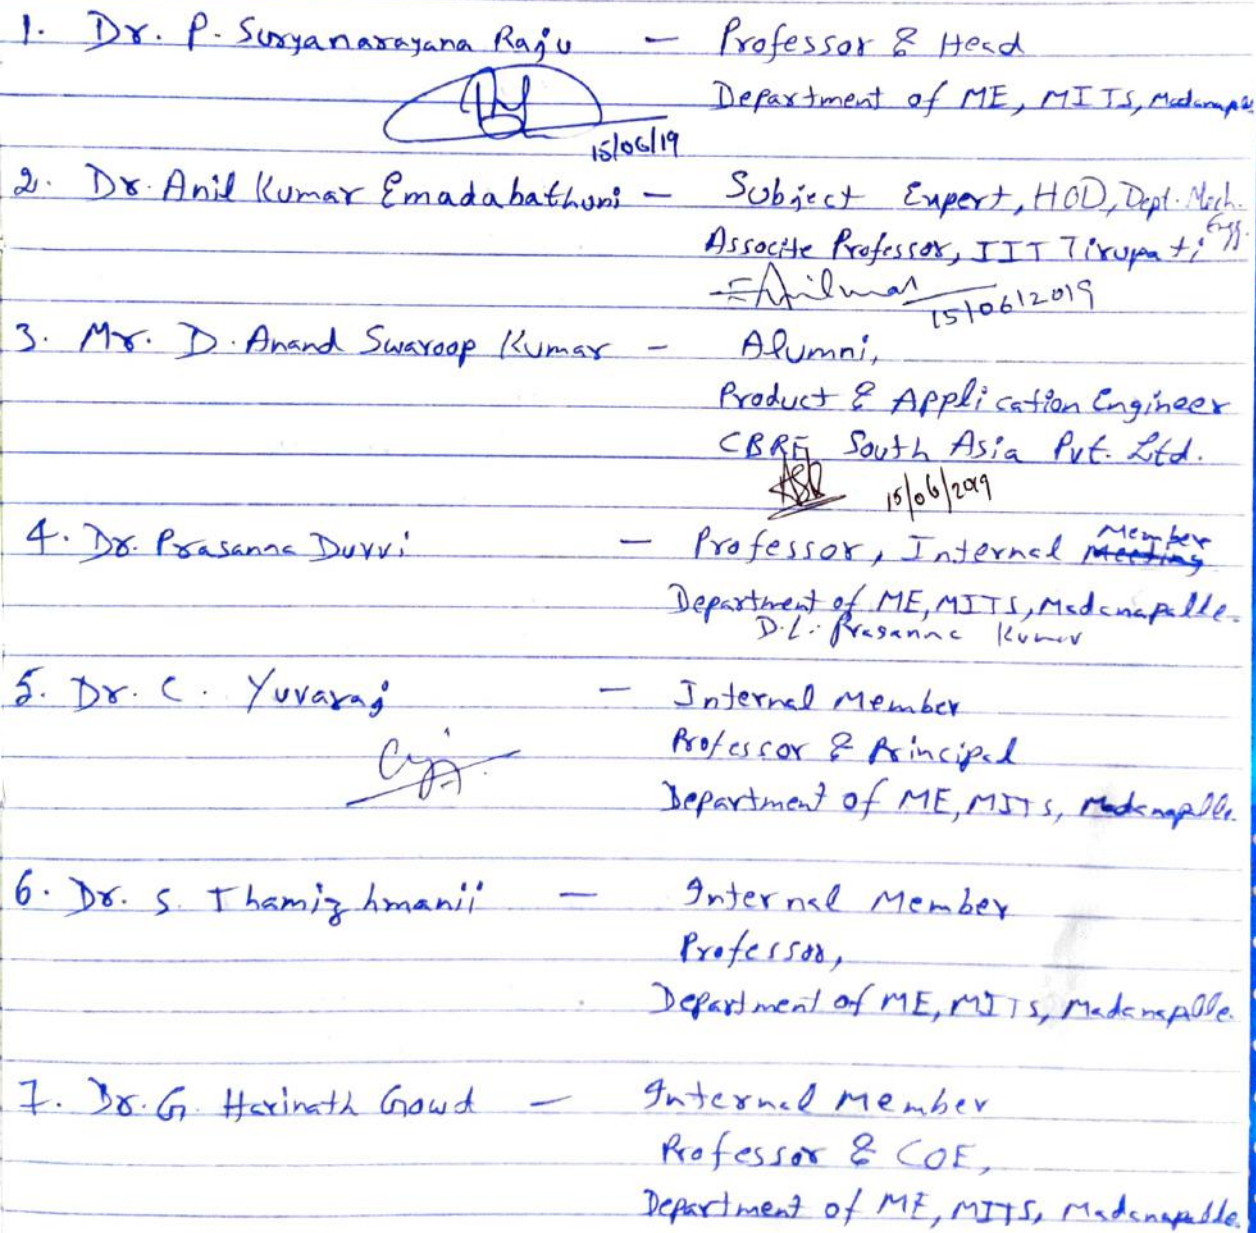 1. Dr. P. Suryanarayana Raju - Professor & Head
Department of ME, MITS, Madanapalle
15/06/19
2. Dr. Anil Kumar Emadabathuni - Subject Expert, HOD, Dept. Mech. Engg.
Associte Professor, IIT Tirupati
15/06/2019
3. Mr. D. Anand Swaroop Kumar - Alumni,
Product & Application Engineer
CBRE South Asia Pvt. Ltd.
15/06/2019
4. Dr. Prasanna Durvi - Professor, Internal Member
Department of ME, MITS, Madanapalle.
D.L. Prasanna Kumar
5. Dr. C. Yuvaraj - Internal Member
Professor & Principal
Department of ME, MITS, Madanapalle.
6. Dr. S. Thamizhmanii - Internal Member
Professor,
Department of ME, MITS, Madanapalle.
7. Dr. G. Harinath Gowd - Internal Member
Professor & COE,
Department of ME, MITS, Madanapalle.